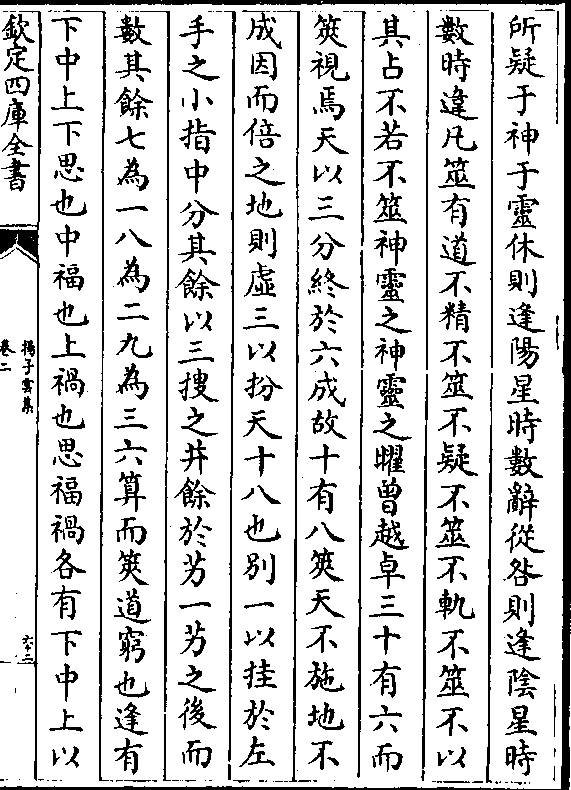 所疑于神于靈休則逢陽星時數辭從咎則逢陰星時
數時違凡筮有道不精不筮不疑不筮不軌不筮不以
其占不若不筮神靈之神靈之曜曾越卓三十有六而
筴視焉天以三分終於六成故十有八筴天不施地不
成因而倍之地則虛三以扮天十八也别一以挂於左
手之小指中分其餘以三搜之并餘於艻一艻之後而
數其餘七為一八為二九為三六算而筴道窮也逢有
下中上下思也中福也上禍也思福禍各有下中上以
欽定四庫全書
揚子雲集
卷二
六十二